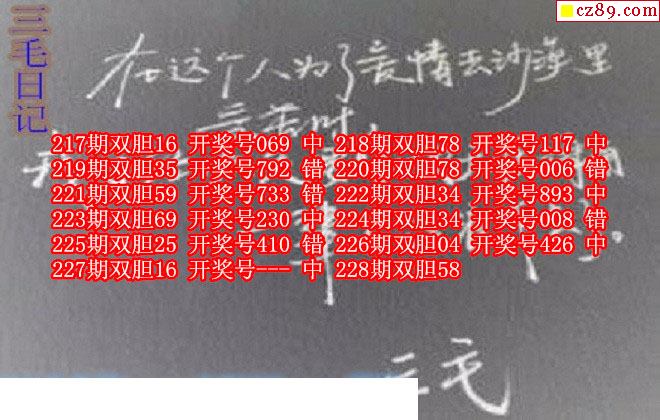 cz89.com
三毛日记
在这个人为了爱情去沙漠里
217期双胆16 开奖号069 中 218期双胆78 开奖号117 中
219期双胆35 开奖号792 错 220期双胆78 开奖号006 错
221期双胆59 开奖号733 错 222期双胆34 开奖号893 中
223期双胆69 开奖号230 中 224期双胆34 开奖号008 错
225期双胆25 开奖号410 错 226期双胆04 开奖号426 中
227期双胆16 开奖号--- 中 228期双胆58
三毛